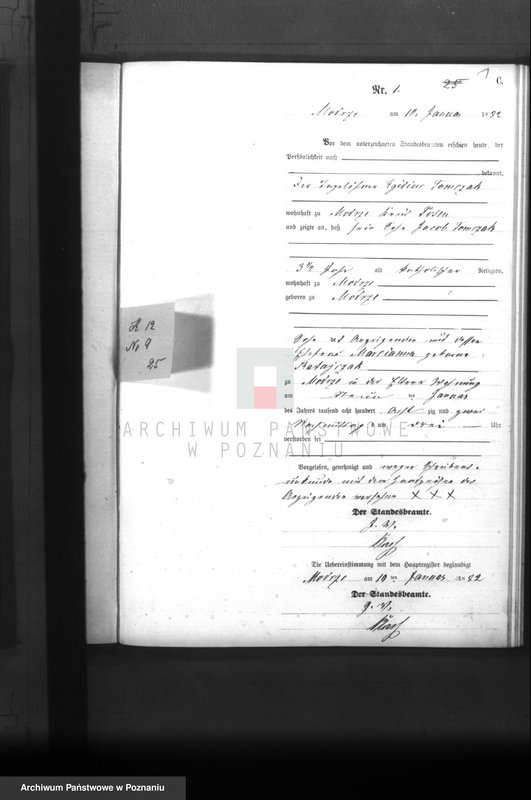 25 1 C.
Nr. 1.
Modrze am 10. Januar 1882
Vor dem unterzeichneten Standesbeamten erschien heute, der
Persönlichkeit nach
bekannt,
Der Tagelöhner Egidius Tomczak
wohnhaft zu Modrze Kreis Posen
und zeigte an, daß sein Sohn Jacob Tomczak
3 1/2 Jahr alt katholischer Religion,
wohnhaft zu Modrze
geboren zu Modrze
Sohn des Anzeigenden und dessen
Ehefrau Marcianna geborne
Ratajczak
zu Modrze in der Eltern Wohnung
am Neun ten Januar
des Jahres tausend acht hundert acht zig und zwei
Nachmittag s um drei Uhr
verstorben sei
Vorgelesen, genehmigt und wegen Schreibens-
unkunde mit dem Handzeichen des
Anzeigenden versehen X X X
Der Standesbeamte.
J. V.
Die Uebereinstimmung mit dem Hauptregister beglaubigt
Modrze am 10 ten Januar 1882
Der Standesbeamte.
J. V.
K 12
No 9
25
ARCHIWUM PAŃSTWOWE
W POZNANIU
Archiwum Państwowe w Poznaniu